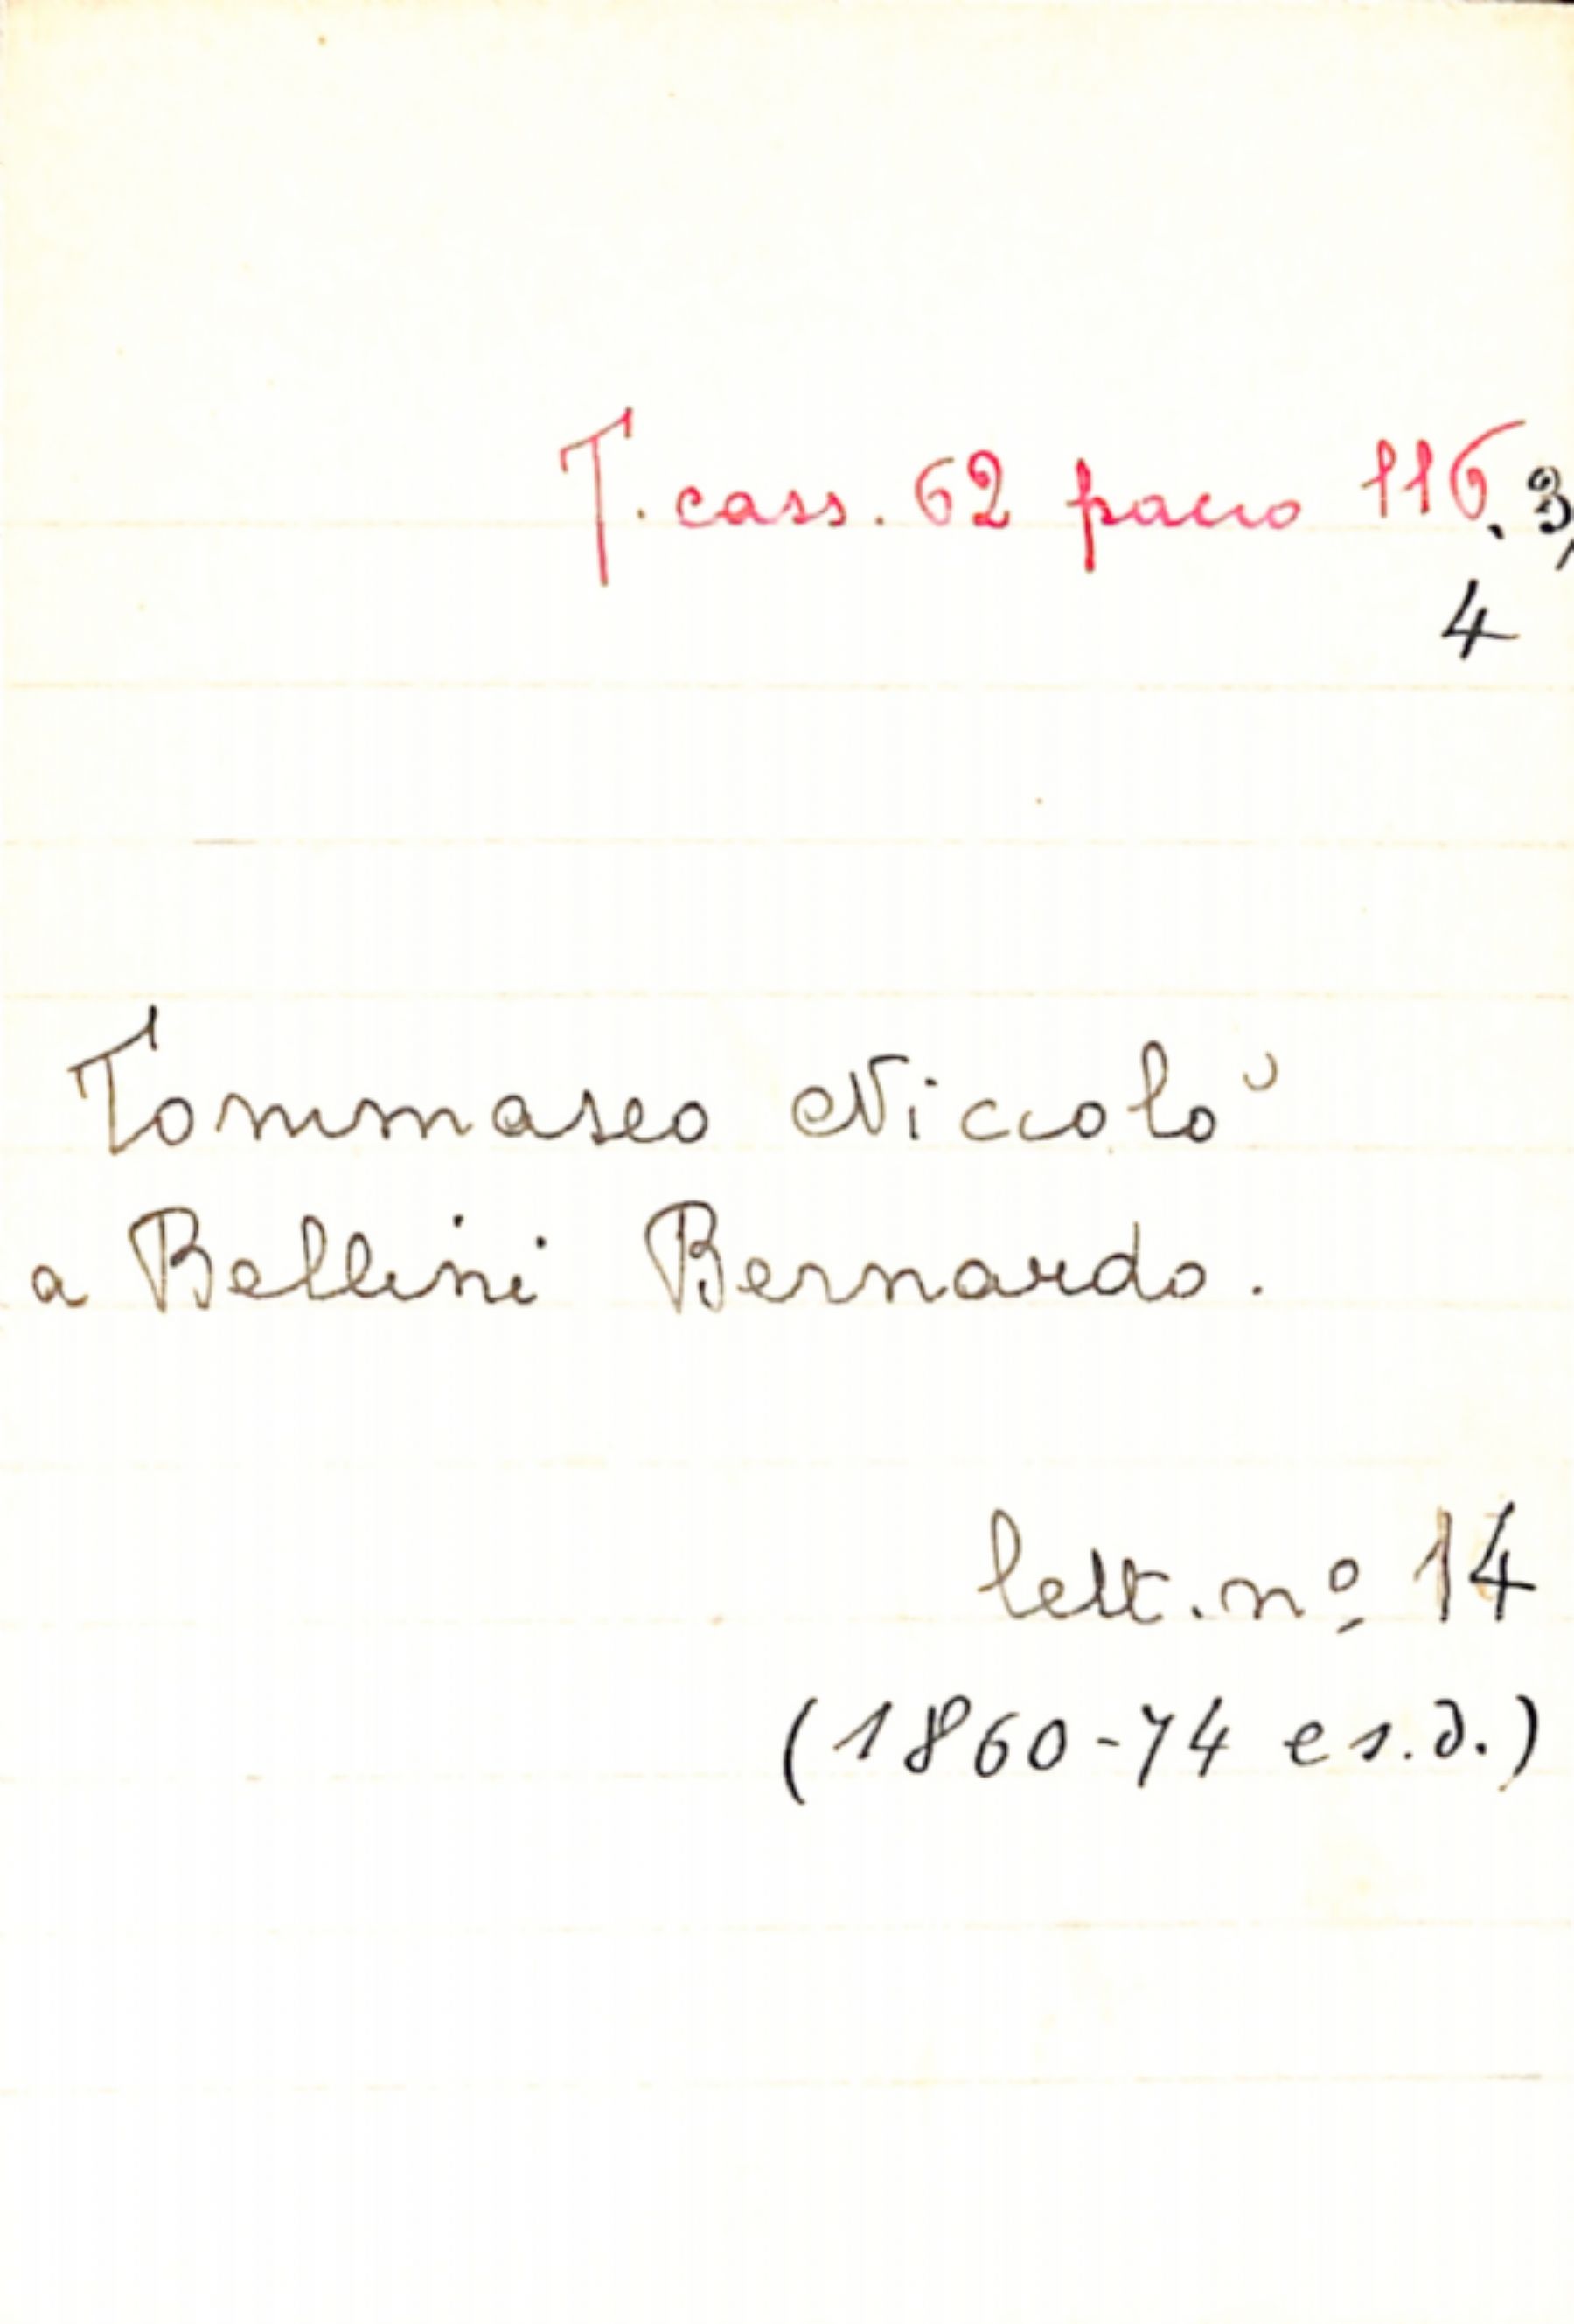 T. cass. 62 pacco 116. 3,
4
Tommaseo Niccolò
a Bellini Bernardo.
lett. nº 14
(1860-74 e s.d.)